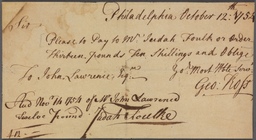 Philadelphia October 12th 1754
Sir
Please to Pay to Mr Judah Foulke or Order
Thirteen pounds Ten Shillings and Oblige
Yor Most Hble Servt
To John Lawrence Esqr
Geo: Ross
Recd Novr 1754 of Mr John Lawrence
Twelve pound
Judah Foulke